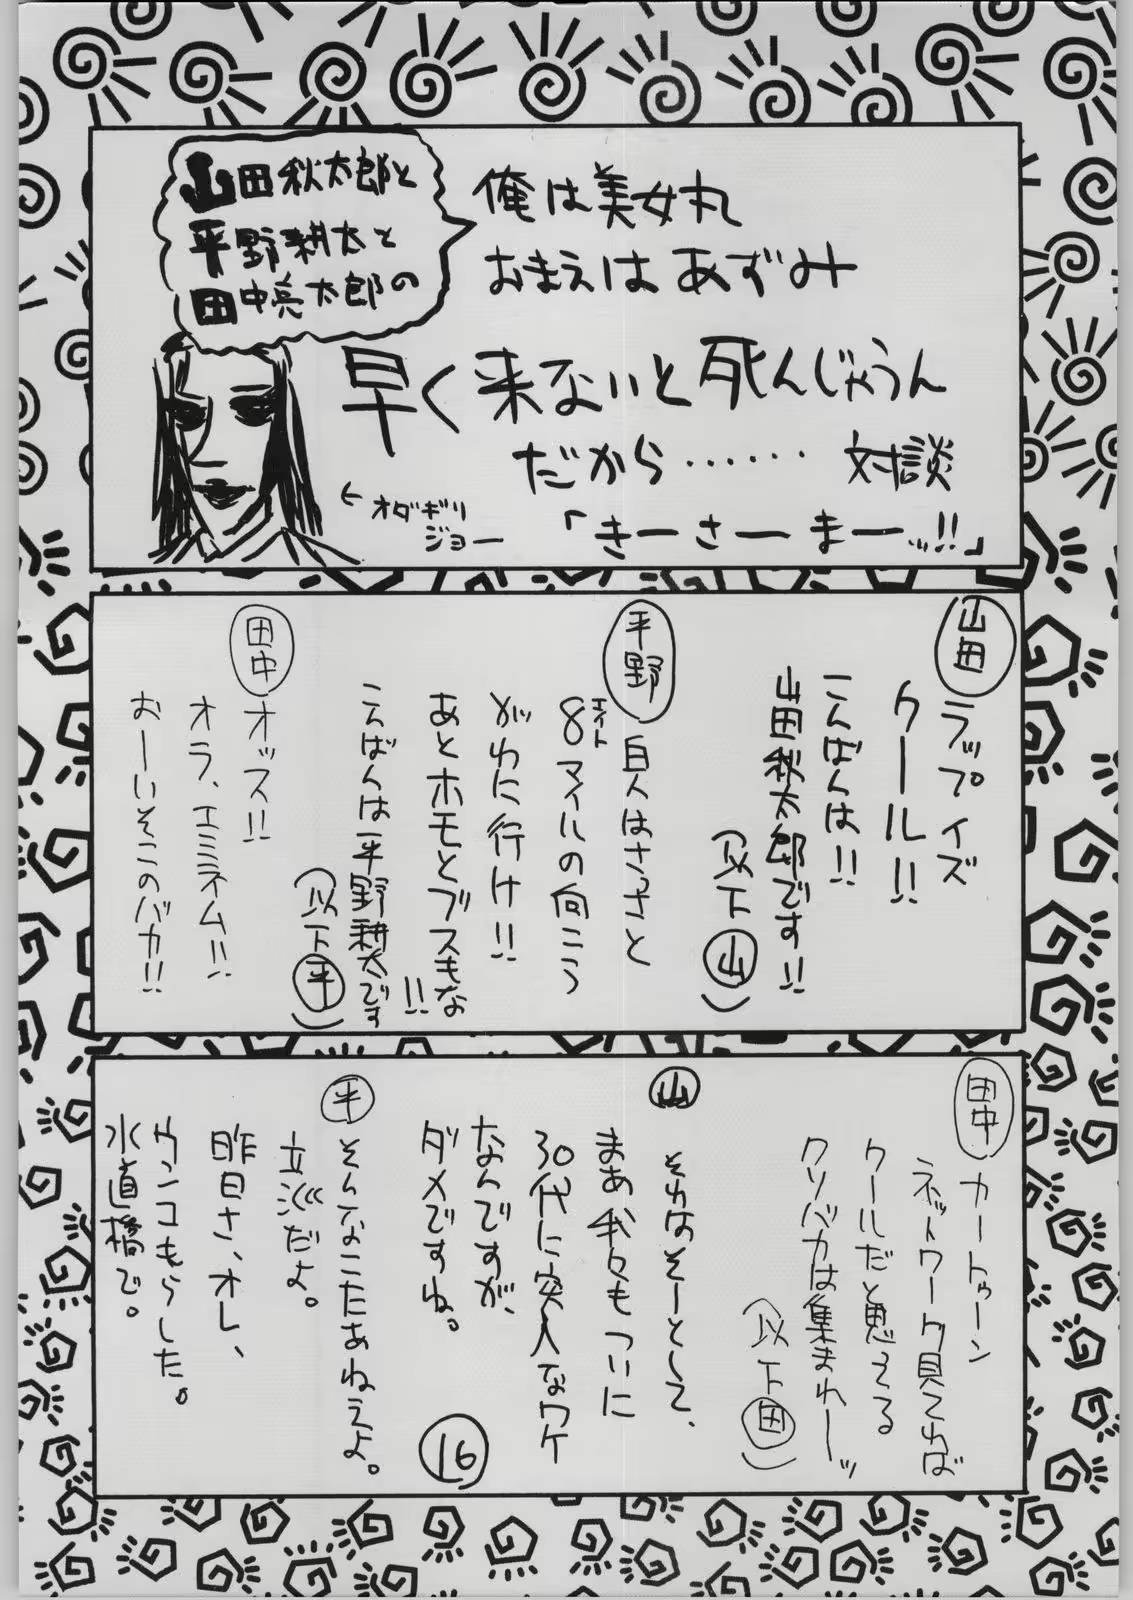 山田秋太郎と
平野耕太と
田中亮太郎の
俺は美女丸
おまえはあずみ
早く来ないと死んじゃうん
だから……対談
「きーさーまー…!!」
←オダギリ
ジョー
山田
ラップイズ
クール!!
こんばんは!!
山田秋太郎です!!
(以下山)
平野
白人はさっさと
8マイルの向こう
エイト
がわに行け!!
あとホモとブスもな!!
こんばんは平野耕太です
(以下平)
田中
オッス!!
オラ、エミネム!!
おーいそこのバカ!!
田中
カートゥーン
ネットワーク見てれば
クールだと思えてる
クソバカは集まれーッ
(以下田)
山
それはそーとして、
まあ我々もついに
30代に突入なワケ
なんですが、
ダメですね。
平
そんなこたあねえよ。
立派だよ。
昨日さ、オレ、
ウンコもらした。
水道橋で。
16